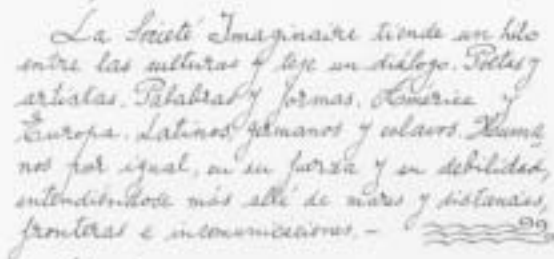 La Société Imaginaire tiende un hilo
entre las culturas y teje un diálogo. Poetas y
artistas. Palabras y formas. América y
Europa. Latinos, germanos y eslavos. Huma-
nos por igual, en su fuerza y en debilidad,
entendiéndose más allá de mares y distancias,
fronteras e incomunicaciones. –